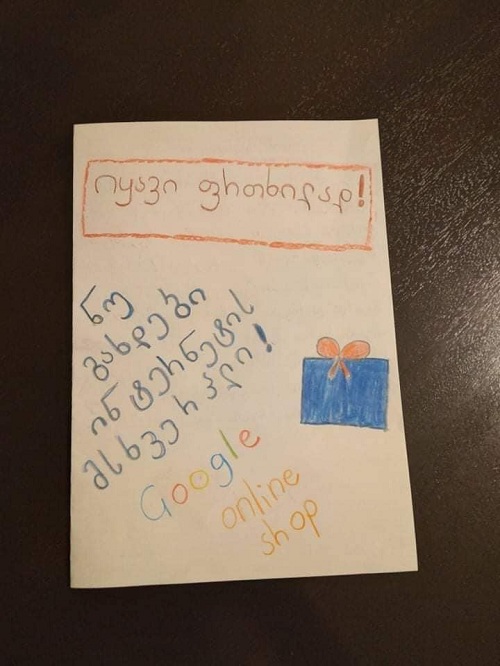 იყავი ფრთხილად!
ნუ
გახდები
ინტერნეტის
მსხვერპლი!
Google
online
shop